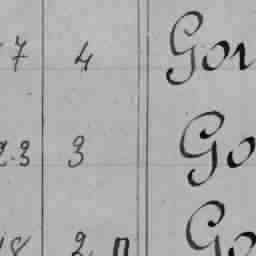 7 4 Gor
23 3 Go
18 2 n Go